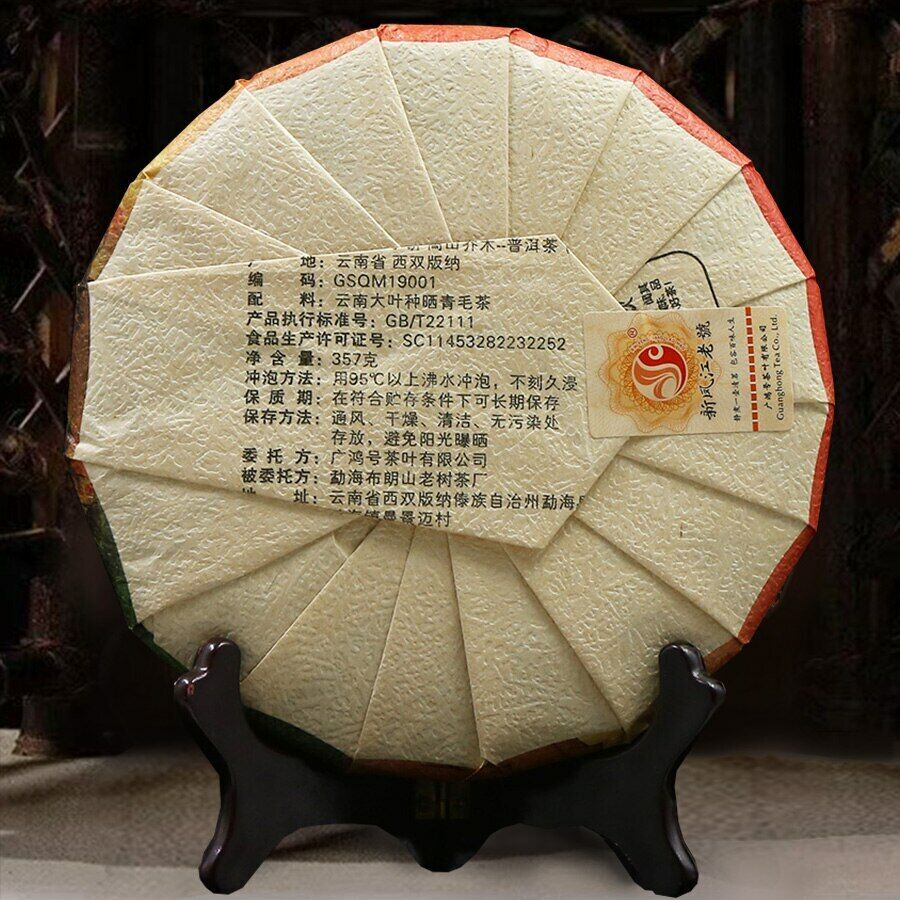 高山乔木--普洱茶
地: 云南省 西双版纳
编 码: GSQM19001
配 料: 云南大叶种晒青毛茶
产品执行标准号: GB/T22111
食品生产许可证号: SC11453282232252
净 含 量: 357克
冲泡方法: 用95℃以上沸水冲泡, 不刻久浸
保 质 期: 在符合贮存条件下可长期保存
保存方法: 通风、干燥、清洁、无污染处
存放, 避免阳光曝晒
委 托 方: 广鸿号茶叶有限公司
被委托方: 勐海布朗山老树茶厂
地 址: 云南省西双版纳傣族自治州勐海
海镇曼景迈村
新凤江老號
®
静煮一壶清茗 包容百味人生
广鸿号茶叶有限公司
Guanghong Tea Co., Ltd.